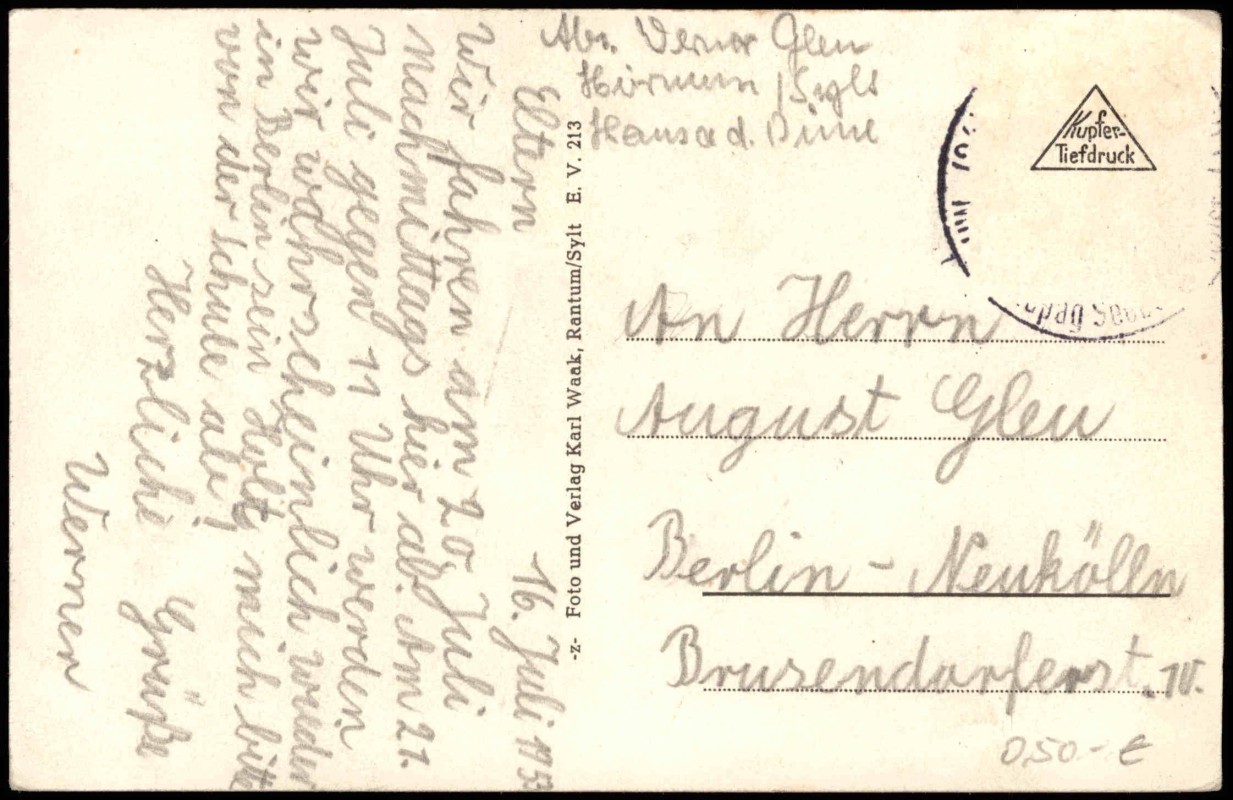 Eltern 16. Juli 1953
Wir fahren am 20. Juli
nachmittags hier ab. Am 21.
Juli gegen 11 Uhr werden
wir wahrscheinlich wieder
in Berlin sein Holt mich bitte
von der Schule ab!
Herzliche Grüße
Werner
-z- Foto und Verlag Karl Waak, Rantum/Sylt E. V. 213
Abs. Verner Gleu
Hörnum / Sylt
Haus a d. Düne
Kupfer-
Tiefdruck
An Herrn
August Gleu
Berlin - Neukölln
Brusendorferst.
0,50- €